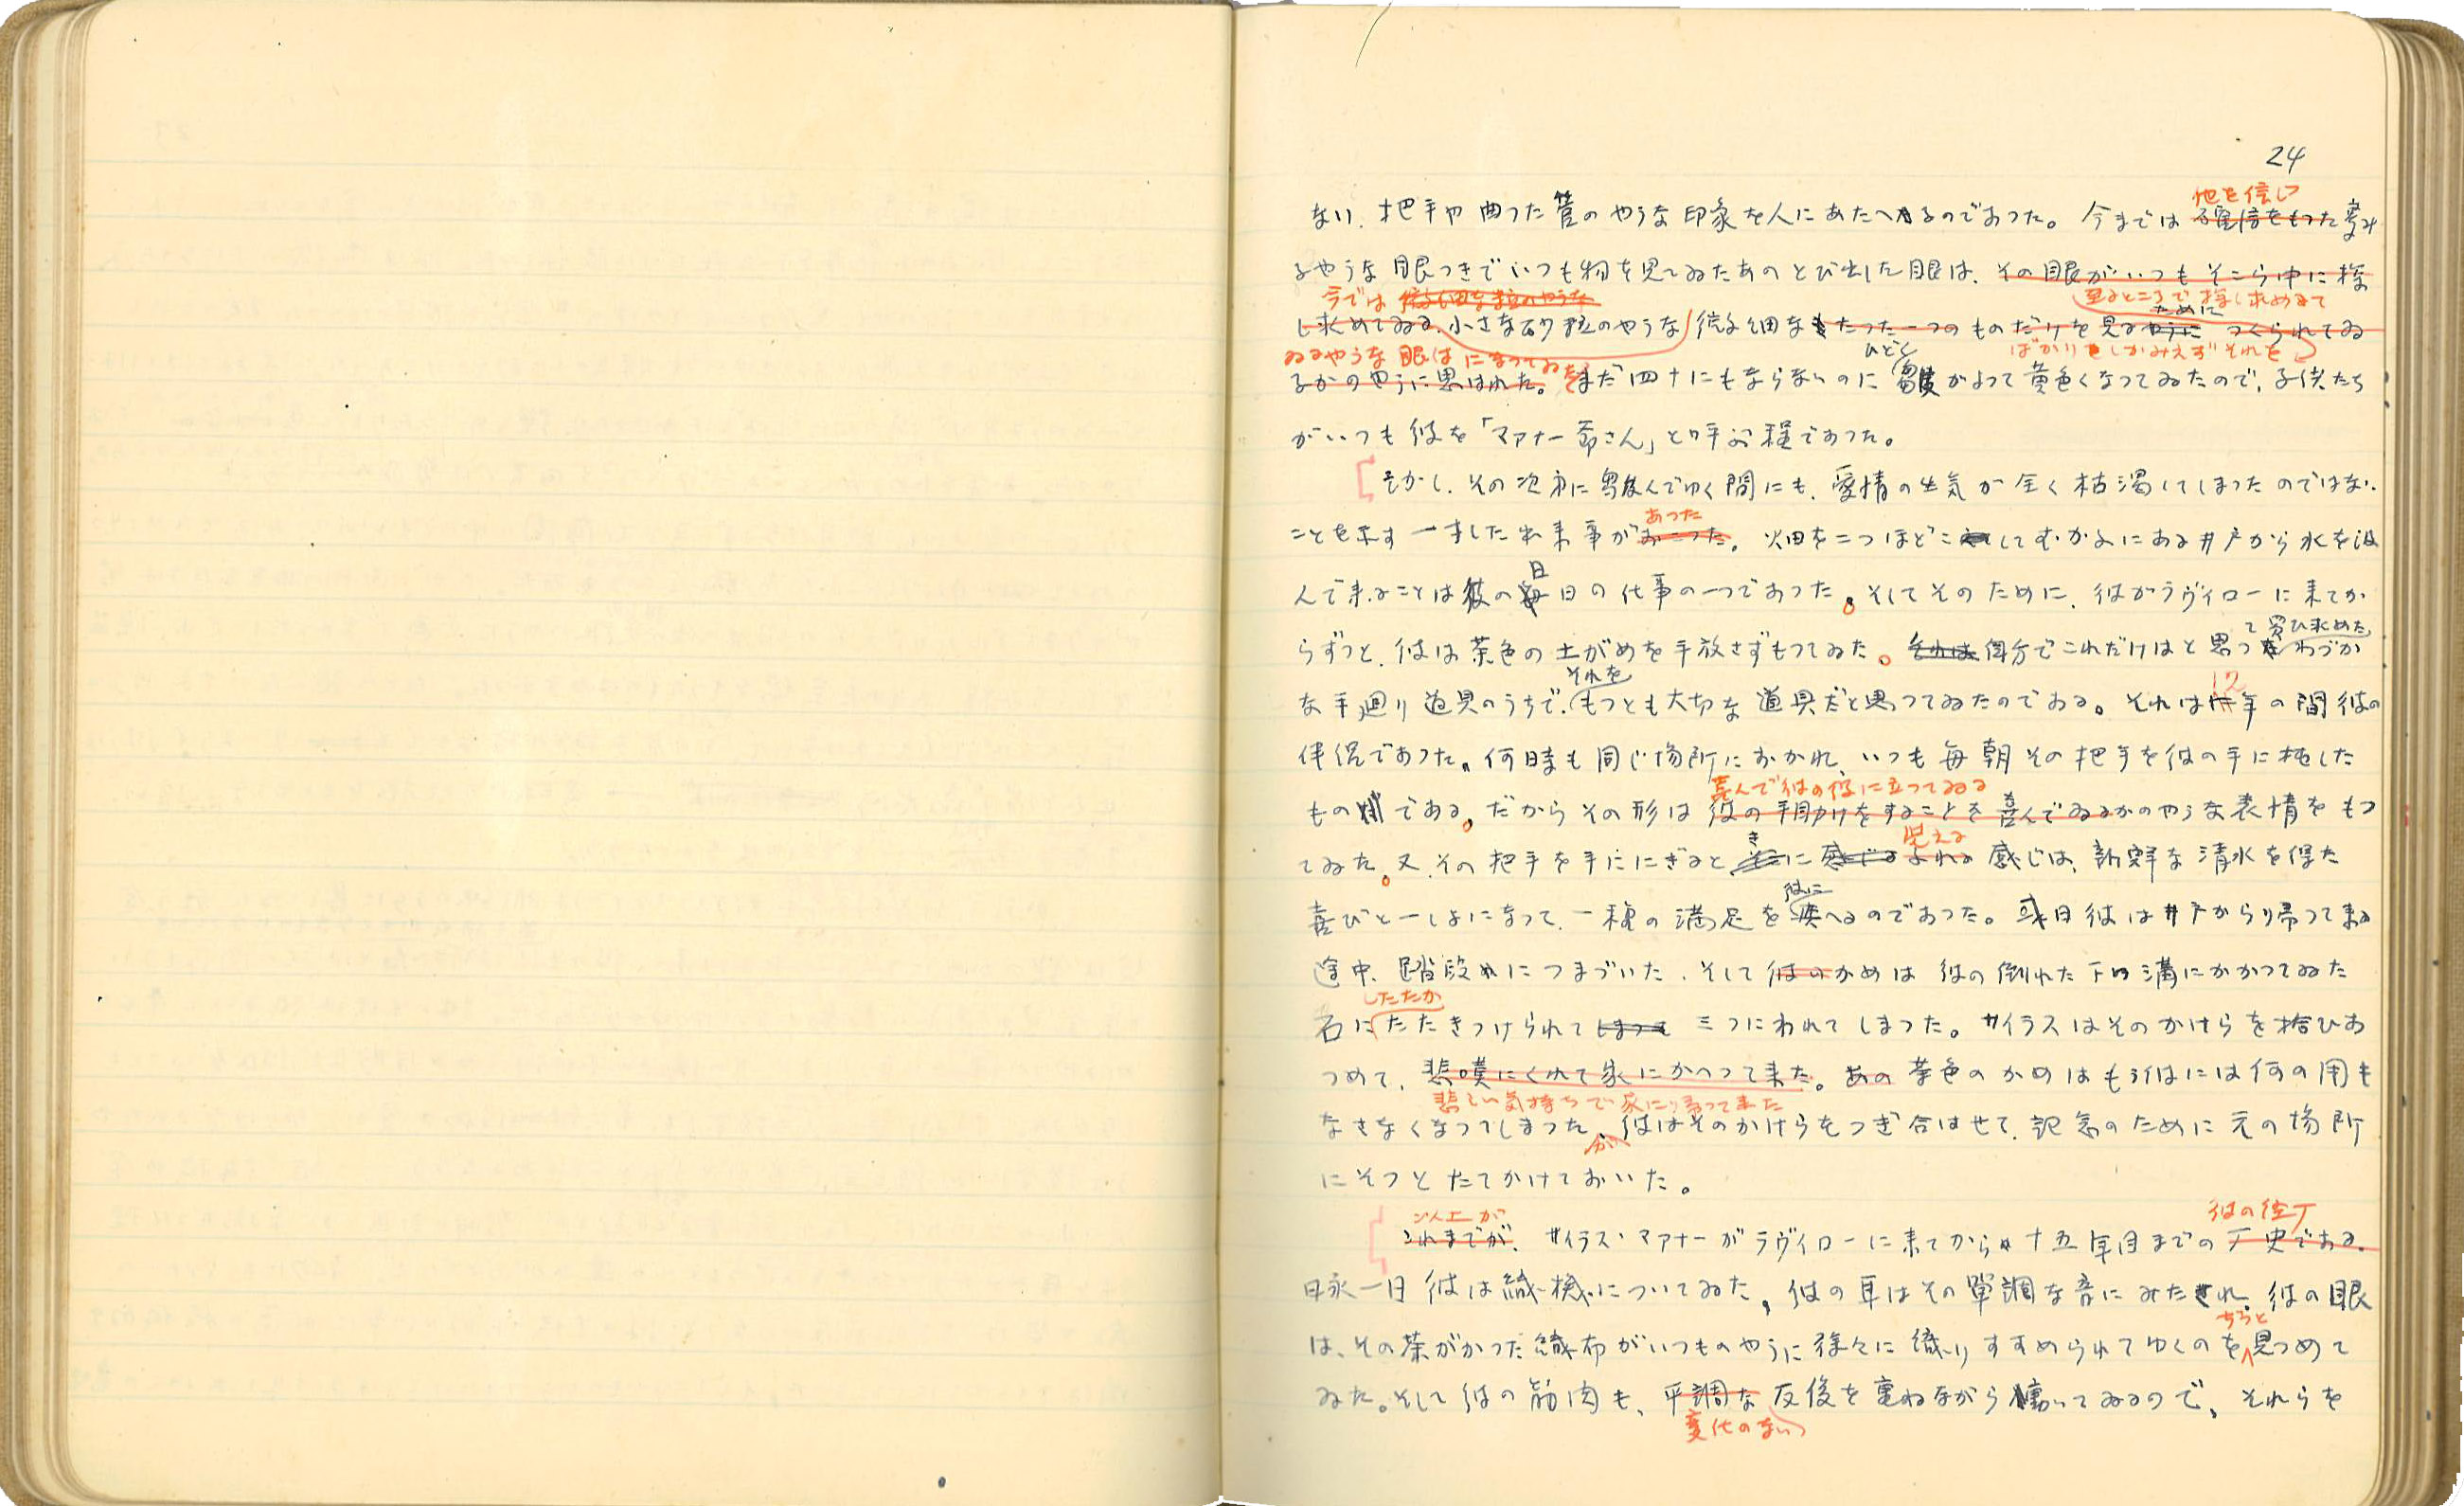 24
他を信じ
ない、把手や曲つた管のやうな印象を人にあたへるのであつた。今までは確信をもつた夢み
るやうな眼つきでいつも物を見てゐたあのとび出した眼は、その眼がいつもそこら中に探
今では 微細な粒のやうな 至るところで探し求めて ために
し求めてゐる、小さな砂粒のやうな微細なたつた一つのものだけを見るやうにつくられてゐ
ゐるやうな眼になつてゐた ひどく ばかりしかみえずそれを
るかのやうに思はれた。まだ四十にもならないのに皺がよつて黄色くなつてゐたので、子供たち
がいつも彼を「マアナー爺さん」と呼ぶ程であつた。
しかし、その次第に皺んでゆく間にも、愛情の生気が全く枯渇してしまつたのではない
あつた
ことを示す一寸した出来事がおこつた。畑を二つほどこしてむかふにある井戸から水を汲
日
んで来ることは彼の毎日の仕事の一つであつた。そしてそのために、彼がラヴィローに来てか
て買ひ求めた
らずつと、彼は茶色の土がめを手放さずもつてゐた。それは自分でこれだけはと思つたわづか
それを 12
な手廻り道具のうちで、もつとも大切な道具だと思つてゐたのである。それは年の間彼の
伴侶であつた。何時も同じ場所におかれ、いつも毎朝その把手を彼の手に托した
喜んで彼の役に立つてゐる
ものである。だからその形は彼の手助けをすることを喜んでゐるかのやうな表情をもつ
き 覚える
てゐた。又、その把手を手ににぎるときに感じる感じは、新鮮な清水を得た
彼に
喜びと一しよになつて、一種の満足を與へるのであつた。或日彼は井戸から帰つて来る
途中、踏段につまづいた、そして彼のかめは彼の倒れた下の溝にかかつてゐた
したたか
石にたたきつけられてしまつて三つにわれてしまつた。サイラスはそのかけらを拾ひあ
つめて、悲嘆にくれて家にかへつて来た。あの茶色のかめはもう彼には何の用も
悲しい気持ちで家に帰つて来た
なさなくなつてしまつた、彼はそのかけらをつぎ合はせて、記念のために元の場所
が
にそつとたてかけておいた。
以上が 彼の
これまでが、サイラス・マアナーがラヴィローに来てから十五年目までの歴史である。
日永一日彼は織機についてゐた。彼の耳はその単調な音にみたされ、彼の眼
ぢつと
は、その茶がかつた織布がいつものやうに徐々に織りすすめられてゆくのを見つめて
ゐた。そして彼の筋肉も、平調な反復を重ねながら働いてゐるので、それらを
変化のない